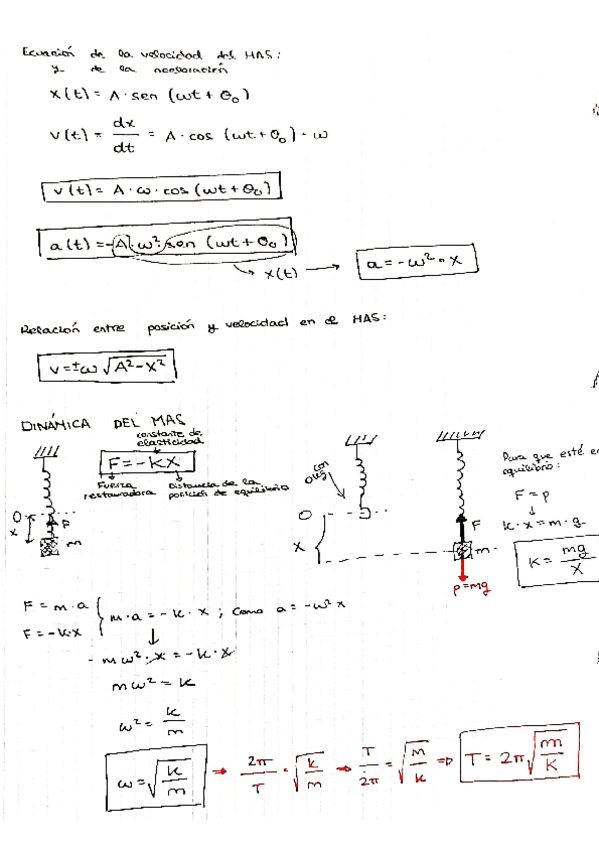 Ecuación de la velocidad del HAS:
y de la aceleración
x(t) = A · sen (ωt + θ₀)
v(t) = dx/dt = A · cos (ωt + θ₀) · ω
v(t) = A · ω · cos (ωt + θ₀)
a(t) = -A · ω² · sen (ωt + θ₀)
x(t) → a = -ω² · x
Relación entre posición y velocidad en el HAS:
v = ±ω √(A² - x²)
DINÁMICA DEL MAS
constante de
elasticidad
F = -KX
Fuerza
restauradora
Distancia de la
posición de equilibrio
O
x
F
m
O
X
F
m
p = mg
Para que esté en
equilibrio:
F = p
↓
k · x = m · g
K = mg/X
F = m · a
F = -k·x
m · a = -k · x ; como a = -ω² x
↓
- mω² · x = -k · x
mω² = k
ω² = k/m
ω = √(k/m) → 2π/T = √(k/m) → T/2π = √(m/k) ⇒ T = 2π √(m/K)